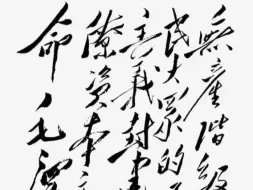 無產階級
民大眾的
主義封建
僚資本主
命 毛澤